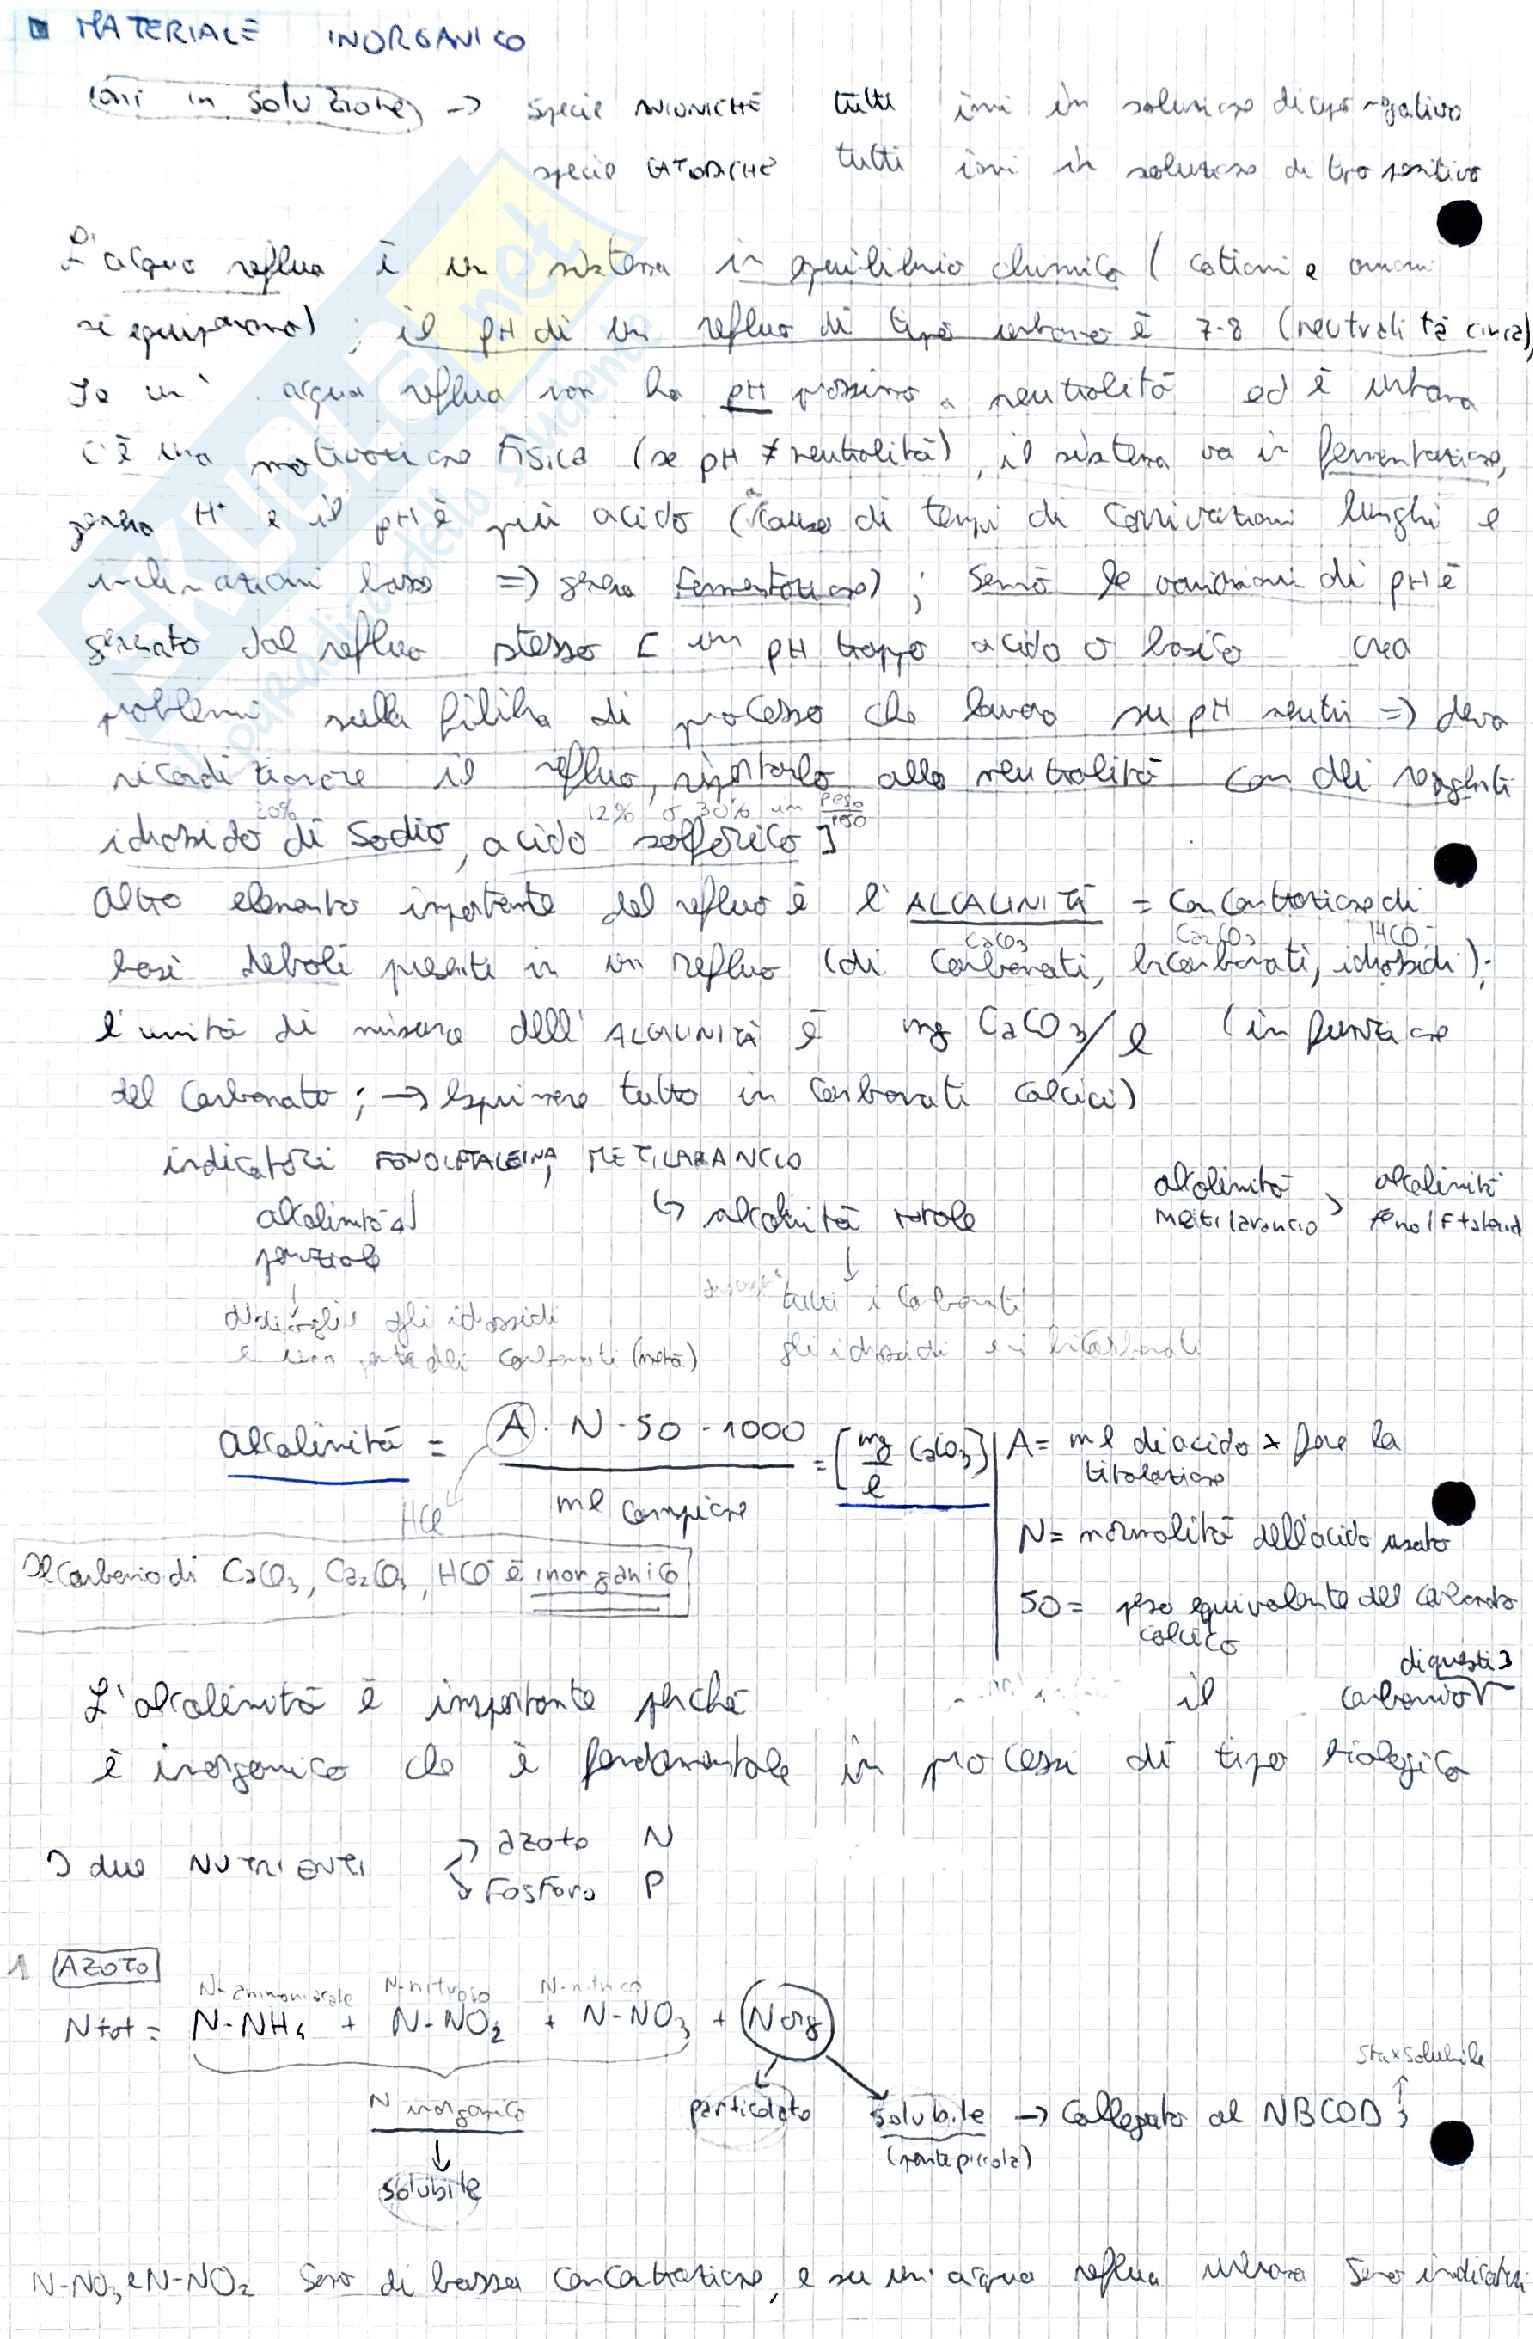 MATERIALE INORGANICO
ioni in soluzione → specie ANIONICHE tutti ioni in soluzione di tipo negativo
specie CATIONICHE tutti ioni in soluzione di tipo positivo
L'acqua reflua è un sistema in equilibrio chimico (cationi e anioni
si equiparano); il pH di un refluo di tipo urbano è 7-8 (neutralità circa),
Se un' acqua reflua non ha pH prossimo a neutralità ed è urbana
c'è una motivazione FISICA (se pH ≠ neutralità), il sistema va in fermentazione,
genera H+ e il pH è più acido (a causa di tempi di corrivazioni lunghi e
inclinazioni basse => genera fermentazione); senò le variazioni di pH è
generato dal refluo stesso [ un pH troppo acido o basico crea
problemi sulla filiera di processo che lavora su pH neutri => devo
ricondizionare il refluo, riportarlo alla neutralità con dei reagenti
20% 12% o 30% in peso/peso
idrossido di sodio, acido solforico]
Altro elemento importante del refluo è l'ALCALINITÀ = concentrazione di
CaCO3 Ca2CO3 HCO-
basi deboli presenti in un refluo (di carbonati, bicarbonati, idrossidi);
l'unità di misura dell'ALCALINITÀ è mg CaCO3/l (in funzione
del carbonato; → esprimere tutto in carbonati calcici)
indicatori FENOLFTALEINA, METILARANCIO
alcalinità parziale ↳ alcalinità totale alcalinità metilarancio > alcalinità fenolftaleina
gli idrossidi tutti i carbonati
e una parte dei carbonati (metà) gli idrossidi e i bicarbonati
alcalinità = A · N · 50 · 1000 / ml campione = [mg/l CaCO3] A = ml di acido x fare la titolazione
HCl
N = normalità dell'acido usato
Il carbonio di CaCO3, Ca2CO3, HCO- è inorganico
50 = peso equivalente del carbonato calcico
L'alcalinità è importante perché il carbonio di questi 3
è inorganico che è fondamentale in processi di tipo biologico
I due NUTRIENTI → azoto N
↘ Fosforo P
1 AZOTO
N-ammoniacale N-nitroso N-nitrico
Ntot = N-NH4 + N-NO2 + N-NO3 + Norg
sta x solubile
N inorganico particolato solubile → collegato al NBCOD
(parte piccola)
solubile
N-NO3 e N-NO2 sono di bassa concentrazione, e su un'acqua reflua urbana sono indicatori
SKUOLA.net
il paradiso dello studente